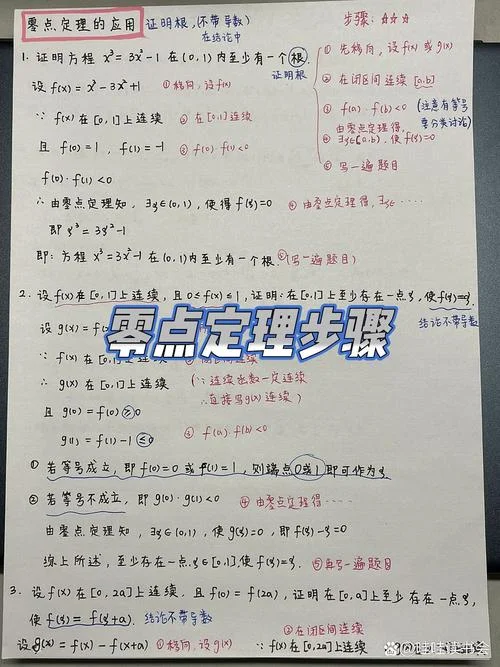 零点定理的应用 证明根,(不带导数)
在结论中
步骤:☆☆☆
1. 证明方程 x³=3x²-1 在(0,1)内至少有一个根.
证明根
① 先移向,设f(x) 或 g(x)
设 f(x)=x³-3x²+1 ① 移向,设f(x)
② 在闭区间连续 [a,b]
∵ f(x) 在[0,1]上连续 ② 在[0,1]连续
③ f(a)·f(b)<0 (注意有等号要分类讨论)
且 f(0)=1, f(1)=-1 ③ f(0)·f(1)<0
由零点定理得,
④ ∃ξ∈(a,b), 使f(ξ)=0
f(0)·f(1)<0
⑤ 写一遍题目
∴ 由零点定理知, ∃ξ∈(0,1), 使得f(ξ)=0 ④ 由零点定理得,∃ξ∈……
即 ξ³=3ξ²-1
即: 方程 x³=3x²-1在(0,1)内至少有一个根. ⑤(写一遍题目)
2. 设f(x)在[0,1]上连续, 且0≤f(x)≤1, 证明:在[0,1]上至少存在一点ξ, 使f(ξ)=ξ.
结论不带导数
设 g(x)=f(x)
零点定理步骤
∵ f(x) 在[0,1]上连续
∴ g(x)在[0,1]上连续 (∵连续函数一定连续
∴直接写g(x)连续)
且 g(0)=f(0)≥0
g(1)=f(1)-1≤0 ③ f(a)·f(b)<0
① 若等号成立, 即f(0)=0 或 f(1)=1, 则端点0或1即可作为ξ
② 若等号不成立, 即g(0)·g(1)<0 ④ 由零点定理得……
由零点定理知, ∃ξ∈(0,1), 使g(ξ)=0, 即f(ξ)-ξ=0
综上所述, 至少存在一点ξ∈[0,1],使f(ξ)=ξ. ⑤再写一遍题目
3. 设f(x)在[0,2a]上连续, 且f(0)=f(2a), 证明在[0,a]上至少存在一点ξ,
使f(ξ)=f(ξ+a). 结论不带导数
② 在闭区间连续
设g(x)=f(x)-f(x+a) ① 移向,设g(x) ∵ f(x)在[0,2a]上连续